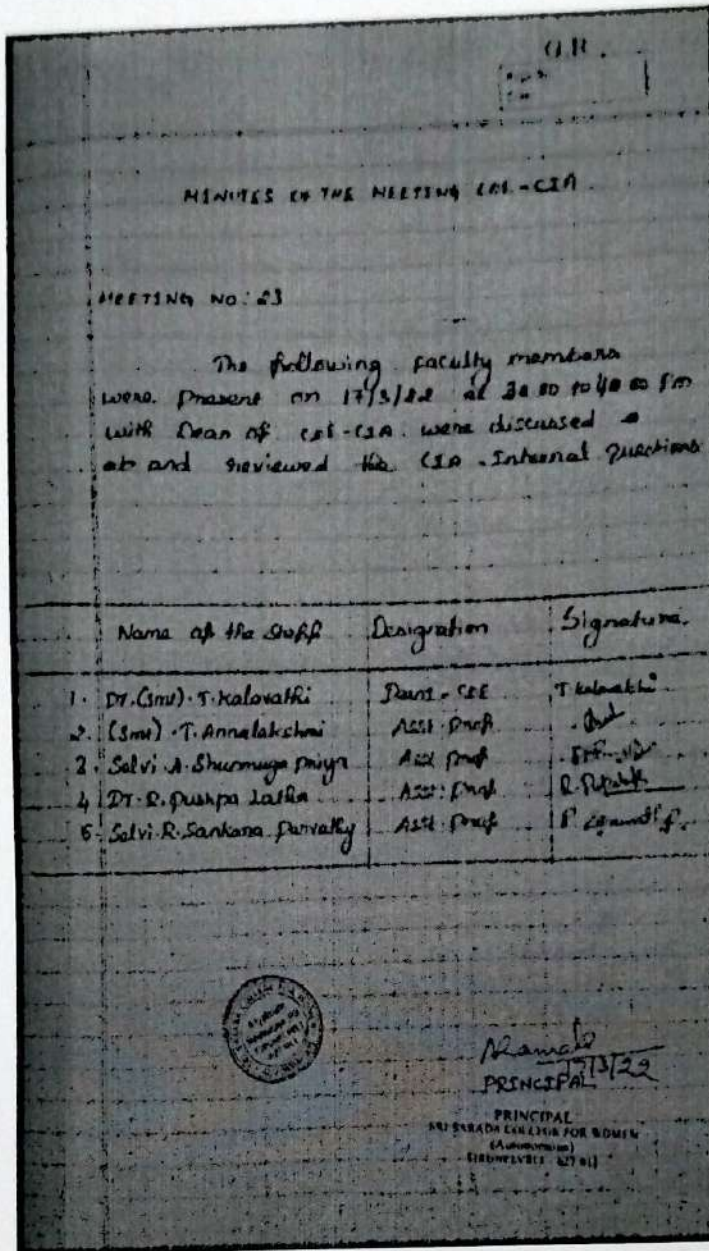 MINUTES OF THE MEETING COE - CIA.
MEETING NO: 23
The following faculty members
were present on 17/3/22 at to Pm
with Dean of COE-CIA were discussed
and reviewed the CIA - Internal questions
Name of the Staff Designation Signature.
1. Dr. (Smt) . T. Kalavathi COE T. Kalavathi
2. (Smt) . T. Annalakshmi Asst. Prof
3. Selvi. A. Shunmuga priya Asst Prof
4 Dr. R. Pushpa Latha Asst. Prof
5. Selvi. R. Sankara Parvathy Asst. Prof
17/3/22
PRINCIPAL
PRINCIPAL
SRI SARADA COLLEGE FOR WOMEN
(Autonomous)
TIRUNELVELI - 627 011